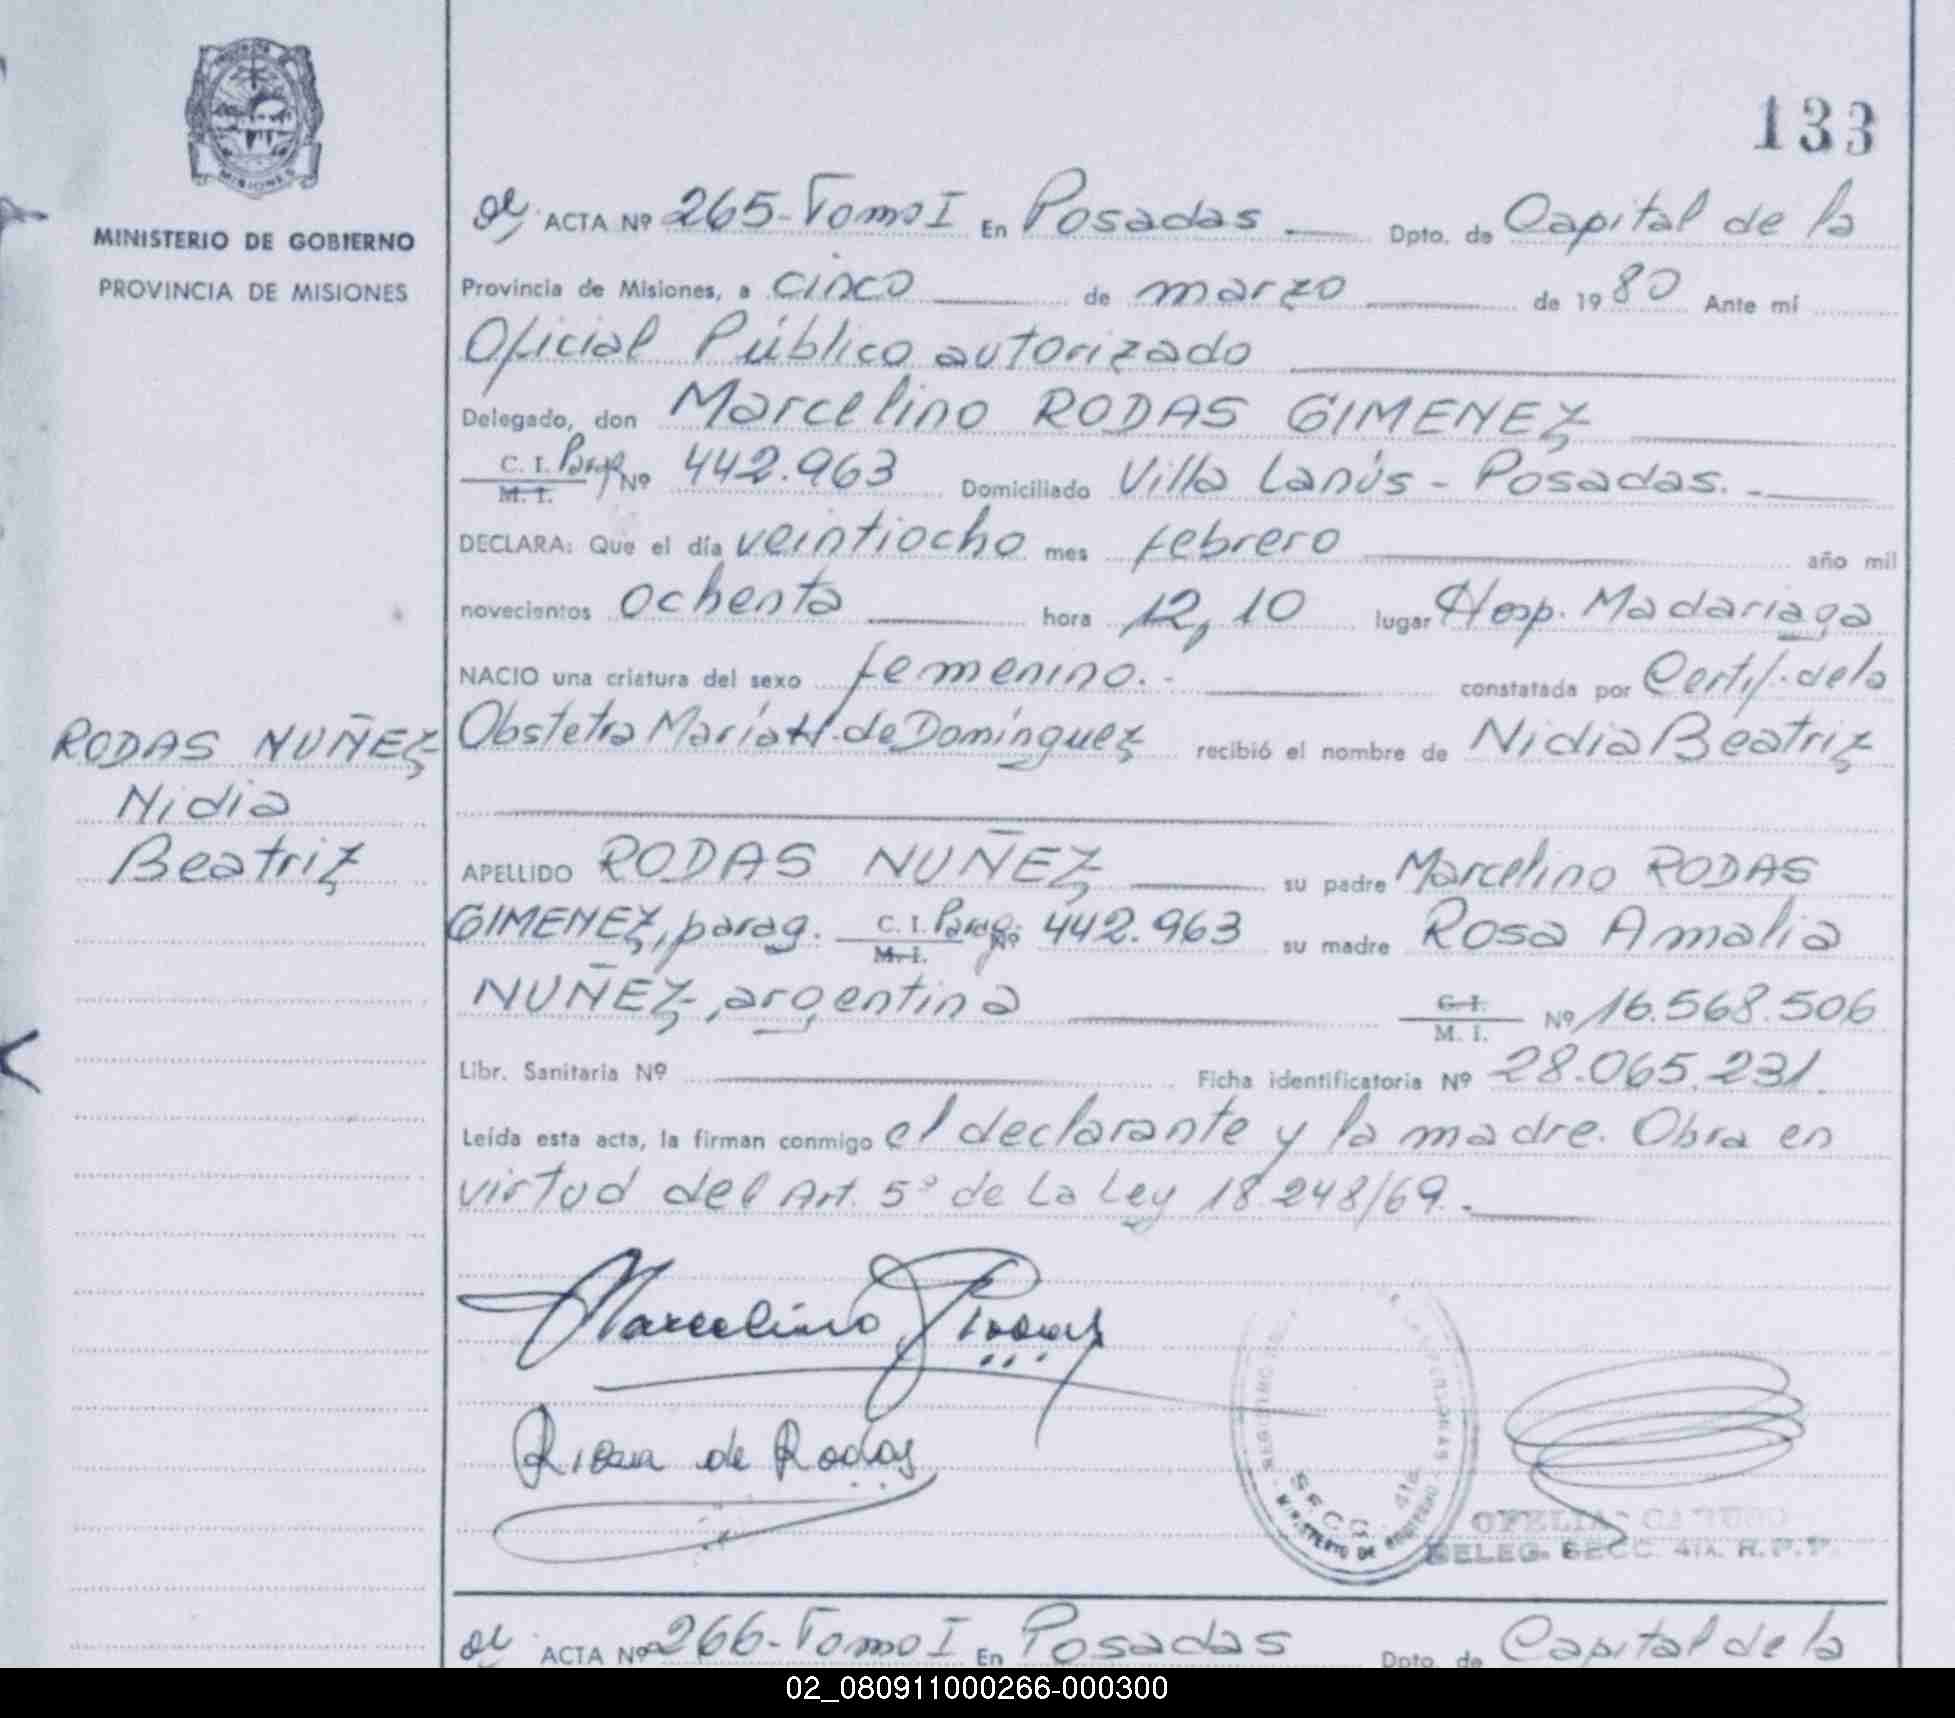 133
MISIONES
MINISTERIO DE GOBIERNO
PROVINCIA DE MISIONES
ACTA Nº 265- Tomo I En Posadas Dpto. de Capital de la
Provincia de Misiones, a cinco de marzo de 1980 Ante mí
Oficial Público autorizado
Delegado, don Marcelino RODAS GIMENEZ
C. I. Parag. Nº 442.963 Domiciliado Villa Lanús - Posadas.-
M. I.
DECLARA: Que el día veintiocho mes febrero año mil
novecientos ochenta hora 12,10 lugar Hosp. Madariaga
NACIO una criatura del sexo femenino.- constatada por Certif. de la
Obstetra María H. de Domínguez recibió el nombre de Nidia Beatriz
RODAS NUÑEZ
Nidia
Beatriz
APELLIDO RODAS NUÑEZ su padre Marcelino RODAS
GIMENEZ, parag. C. I. Parag. Nº 442.963 su madre Rosa Amalia
M. I.
NUÑEZ, argentina C. I. Nº 16.568.506
M. I.
Libr. Sanitaria Nº Ficha identificatoria Nº 28.065.231.
Leída esta acta, la firman conmigo el declarante y la madre. Obra en
virtud del Art. 5º de La Ley 18.248/69.-
Marcelino Rodas
de Rodas
SECC. 4ta.
MINISTERIO DE GOBIERNO
OFELIA CARUSO
DELEG. SECC. 4ta. R.P.P.
ACTA Nº 266- Tomo I En Posadas Dpto. de Capital de la
02_080911000266-000300